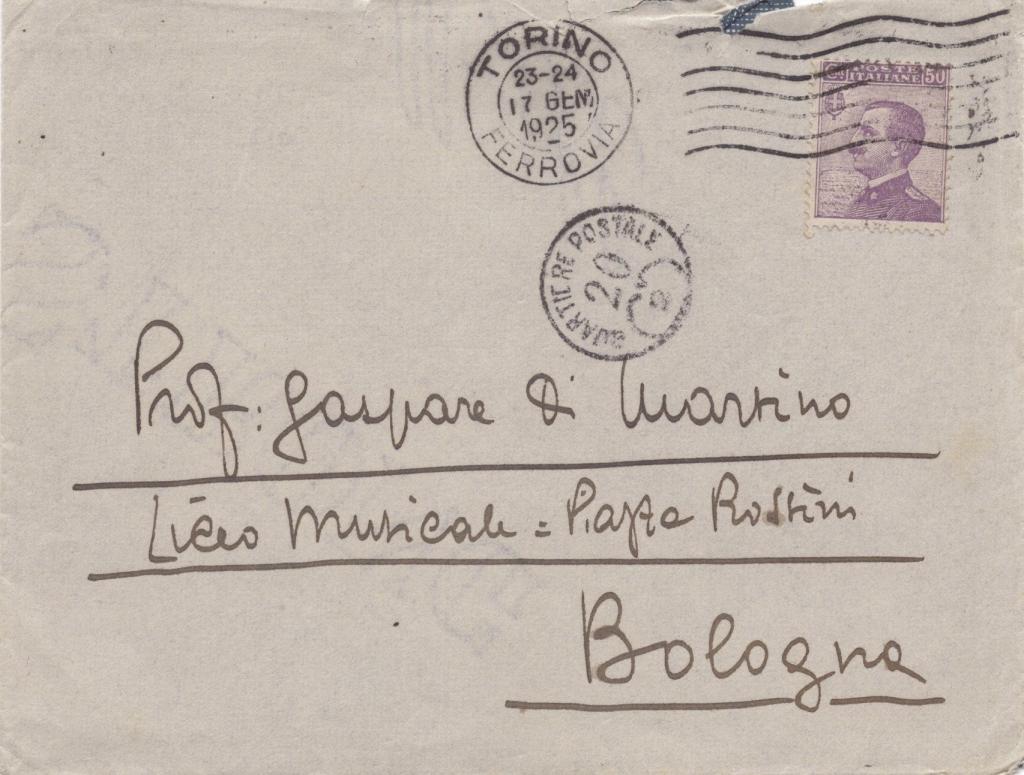 TORINO
23-24
17 GEN
1925
FERROVIA
POSTE
ITALIANE 50
QUARTIERE POSTALE
20
Prof: Gaspare Di Martino
Liceo Musicale = Piazza Rossini
Bologna